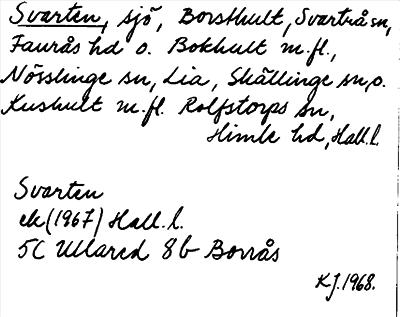 Svarten, sjö, Borshult, Svartrå sn,
Faurås hd o. Bokhult m.fl.,
Nösslinge sn, Lia, Skällinge sn, o.
Kushult m.fl. Rolfstorps sn,
Himle hd, Hall. l.
Svarten
ek (1967) Hall. l.
5C Ullared 8b Borrås
KJ. 1968.